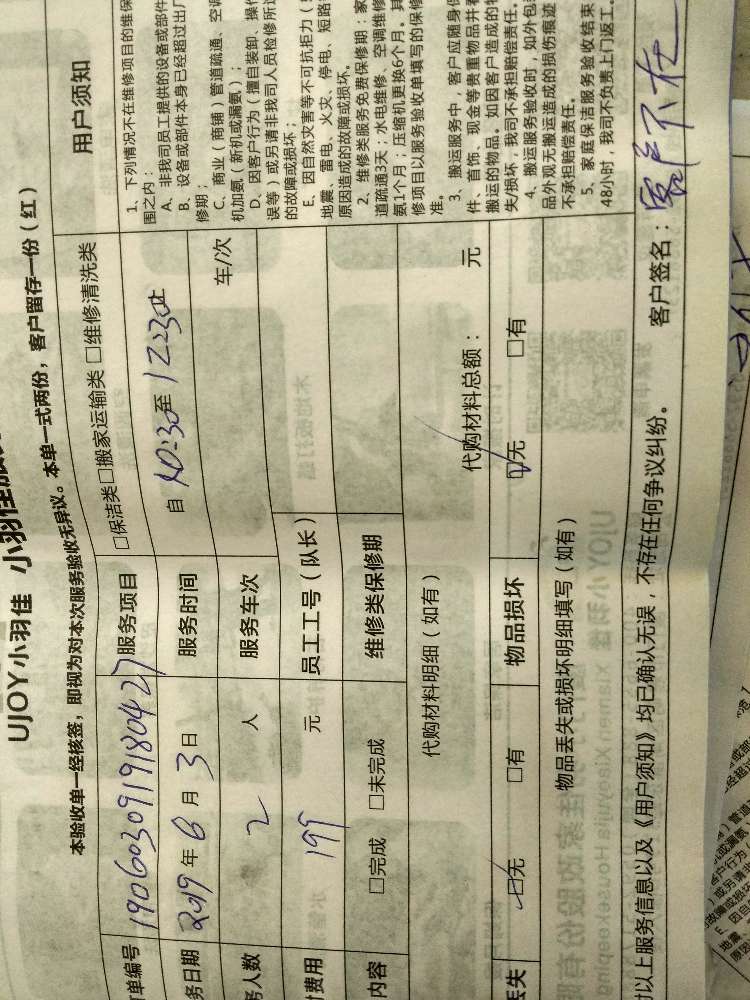 UJOY小羽佳 小羽佳
本验收单一经核签，即视为对本次服务验收无异议。本单一式两份，客户留存一份（红）
单编号 190603091918042 7 服务项目 □保洁类□搬家运输类 □维修清洗类
务日期 2019 年 6 月 3 日 服务时间 自 10:30 至 12:30 止
务人数 2 人 服务车次 车/次
费用 199 元 员工工号（队长）
内容 □完成 □未完成 维修类保修期
代购材料明细（如有） 代购材料总额： 元
丢失 □无 □有 物品损坏 □无 □有
物品丢失或损坏明细填写（如有）
以上服务信息以及《用户须知》均已确认无误，不存在任何争议纠纷。 客户签名：客户不在
用户须知
1、下列情况不在维修项目的维保
围之内：
A、非我司员工提供的设备或部件
B、设备或部件本身已经超过出厂
修期；
C、商业（商铺）管道疏通、空调
机加氨（新机或漏氨）；
D、因客户行为（擅自装卸、操作
误等）或另请非我司人员检修所造
的故障或损坏；
E、因自然灾害等不可抗拒力（
地震、雷电、火灾、停电、短路
原因造成的故障或损坏。
2、维修类服务免费保修期：家
道疏通3天；水电维修、空调维修
氨1个月；压缩机更换6个月。其
修项目以服务验收单填写的保修
准。
3、搬运服务中，客户应随身保
件、首饰、现金等贵重物品并看
搬运的物品。如因客户造成的物
失/损坏，我司不承担赔偿责任。
4、搬运服务验收时，如外包装
品外观无搬运造成的损伤痕迹
不承担赔偿责任。
5、家庭保洁服务验收结束
48小时，我司不负责上门返工。